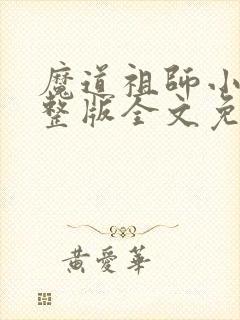 魔道祖師小
整版全文免
黃愛華